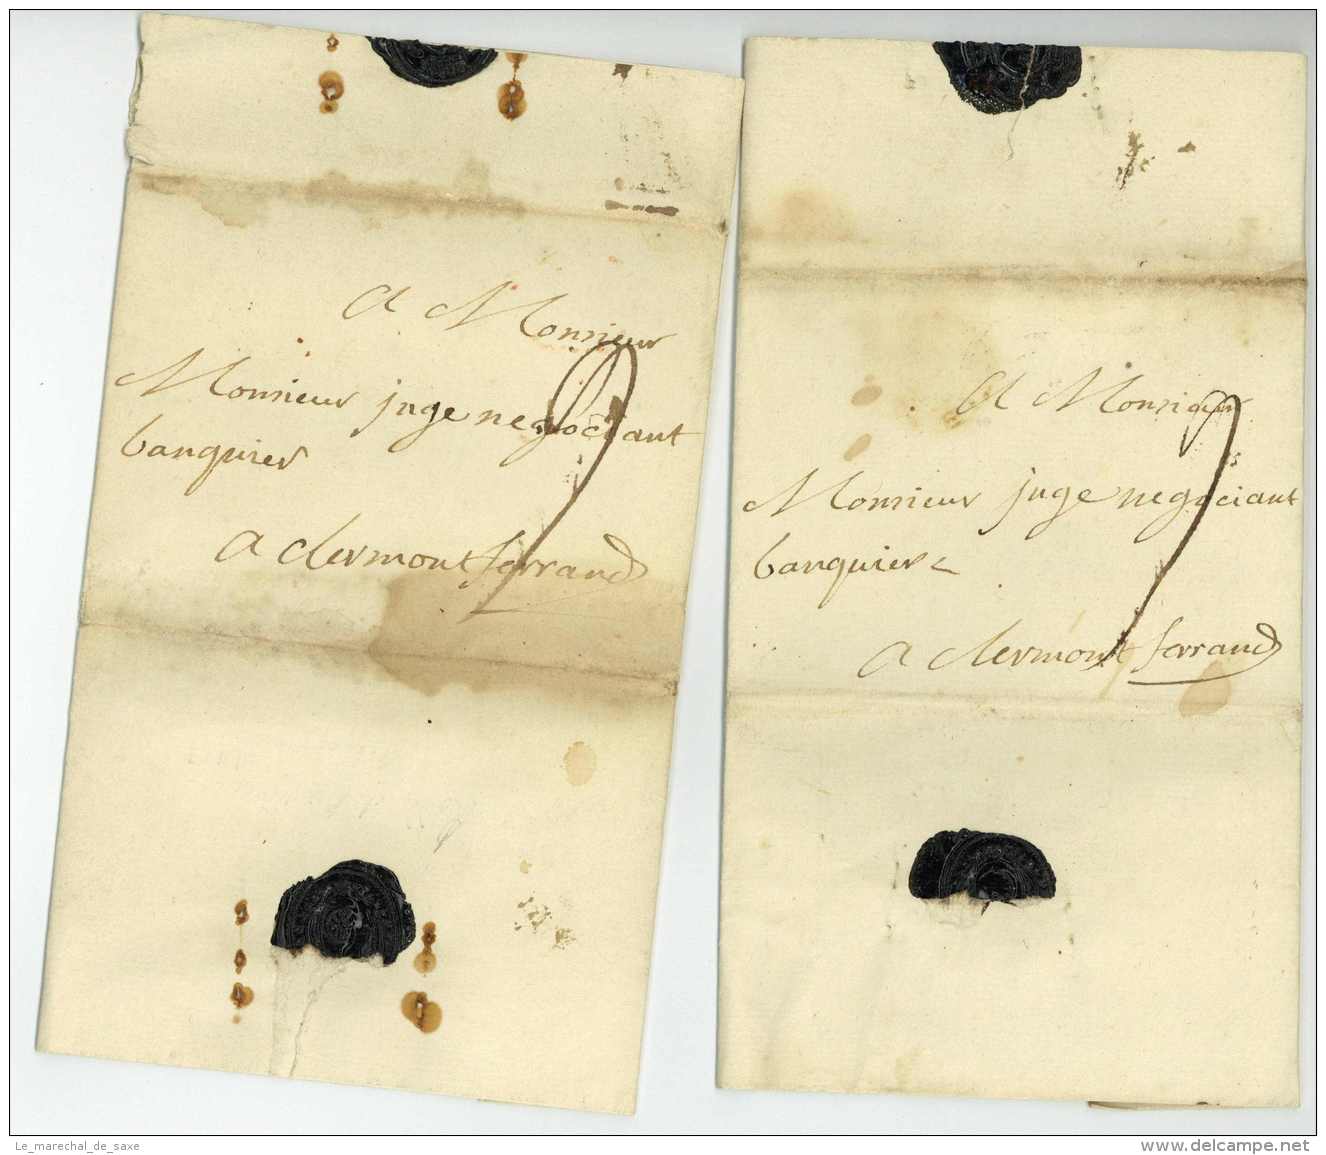 A Monsieur
Monsieur juge negociant
banquier
A clermont ferrand
9
A Monsieur
Monsieur juge negociant
banquier
A clermont ferrand
9
Le_marechal_de_saxe
www.delcampe.net